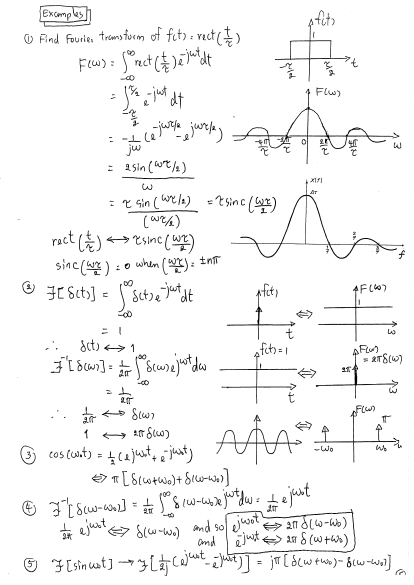 Examples
① Find Fourier transform of f(t) = rect(t/τ)
F(ω) = ∫_{-∞}^{∞} rect(t/τ) e^{-jωt} dt
= ∫_{-τ/2}^{τ/2} e^{-jωt} dt
= -1/jω (e^{-jωτ/2} - e^{jωτ/2})
= 2 sin(ωτ/2) / ω
= τ sin(ωτ/2) / (ωτ/2) = τ sinc(ωτ/2)
rect(t/τ) ↔ τ sinc(ωτ/2)
sinc(ωτ/2) = 0 when (ωτ/2) = ±nπ
f(t)
1
-τ/2 τ/2 t
F(ω)
-4π/τ -2π/τ 0 2π/τ 4π/τ ω
X(f)
f
② ℱ[δ(t)] = ∫_{-∞}^{∞} δ(t) e^{-jωt} dt
= 1
∴ δ(t) ↔ 1
ℱ^{-1}[δ(ω)] = 1/2π ∫_{-∞}^{∞} δ(ω) e^{jωt} dω
= 1/2π
∴ 1/2π ↔ δ(ω)
1 ↔ 2πδ(ω)
f(t) ⇔ F(ω)
t ω
f(t) = 1 ⇔ F(ω) = 2πδ(ω)
2π
t ω
③ cos(ω₀t) = 1/2 (e^{jω₀t} + e^{-jω₀t})
⇔ π[δ(ω+ω₀) + δ(ω-ω₀)]
⇔ F(ω)
π
-ω₀ ω₀
④ ℱ^{-1}[δ(ω-ω₀)] = 1/2π ∫_{-∞}^{∞} δ(ω-ω₀) e^{jωt} dω = 1/2π e^{jω₀t}
1/2π e^{jω₀t} ⇔ δ(ω-ω₀) and so e^{jω₀t} ⇔ 2π δ(ω-ω₀)
and e^{-jω₀t} ⇔ 2π δ(ω+ω₀)
⑤ ℱ[sin ω₀t] → ℱ[1/2j (e^{jω₀t} - e^{-jω₀t})] = jπ[δ(ω+ω₀) - δ(ω-ω₀)]